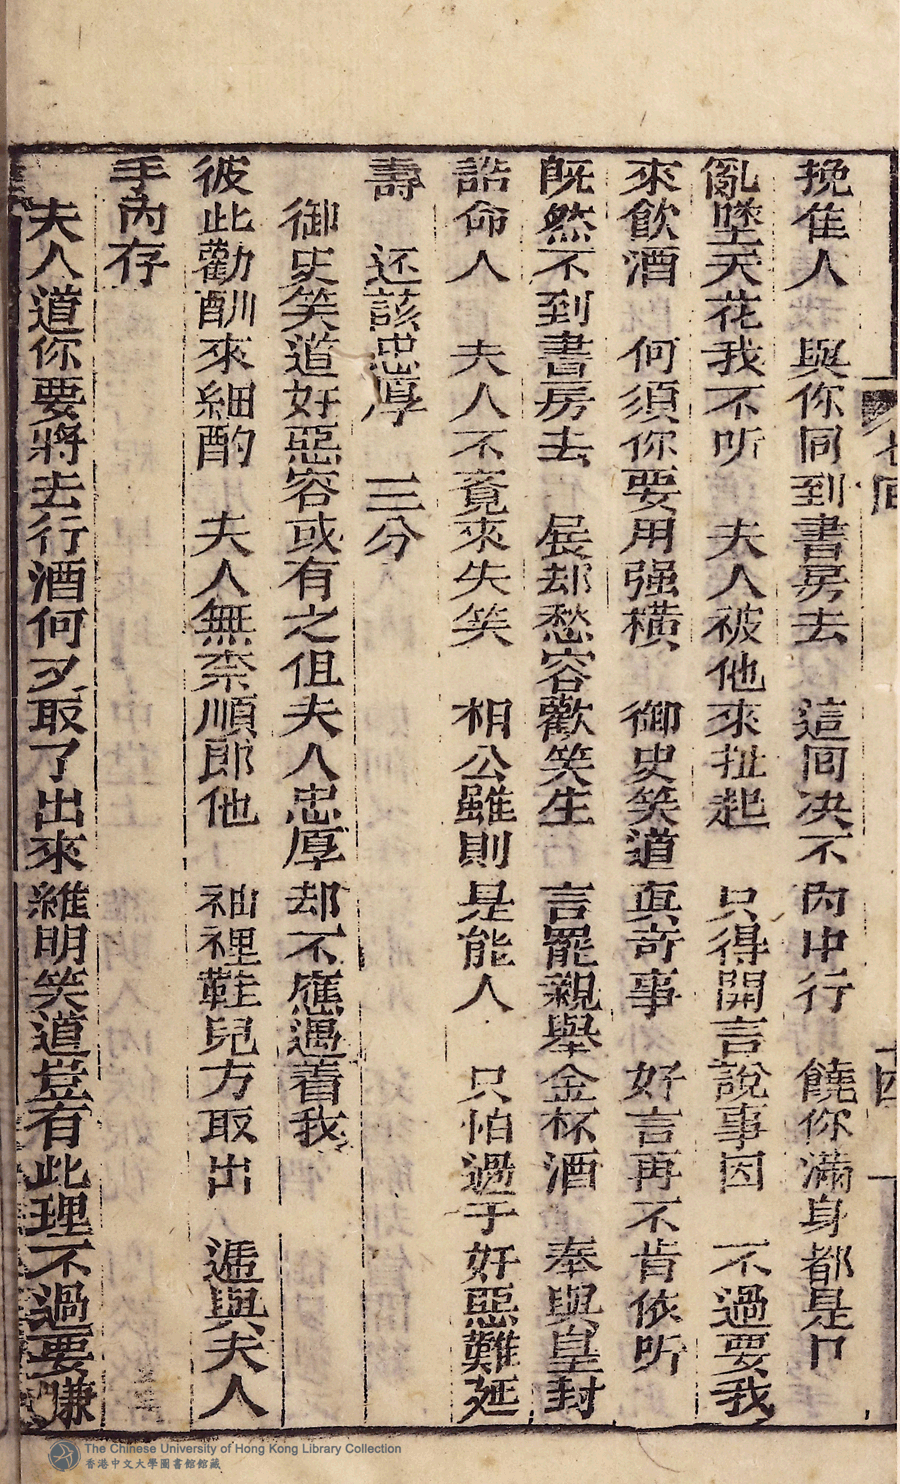 挽隹人　與你同到書房去　這囘决不內中行　饒你滿身都是口
亂墜天花我不听　夫人被他來扯起　只得開言說事因　不過要我
來飲酒　何須你要用强橫　御史笑道眞奇事　好言再不肯依听
旣然不到書房去　展却愁容歡笑生　言罷親舉金杯酒　奉與皇封
誥命人　夫人不覔來失笑　相公雖則是能人　只怕過于奸惡難延
壽　还該忠厚　三分
御史笑道奸惡容或有之伹夫人忠厚却不應遇着我
彼此勸酬來細酌　夫人無柰順郎他　袖裡鞋兒方取出　遞與夫人
手內存
夫人道你要將去行酒何又取了出來　維明笑道豈有此理不過要賺
The Chinese University of Hong Kong Library Collection
香港中文大學圖書館館藏